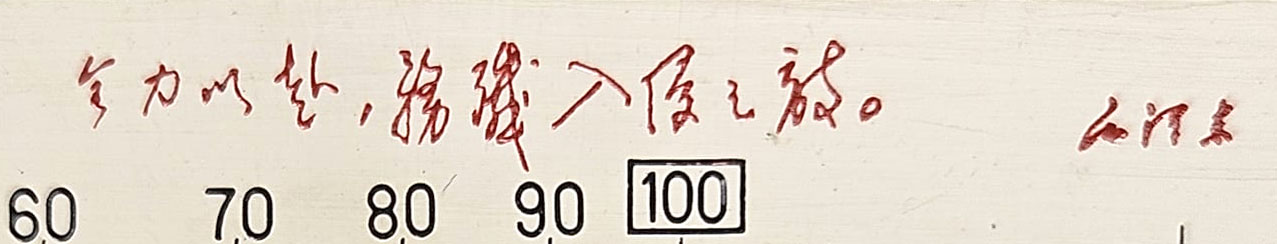 全力以赴，务殲入侵之敵。
毛泽东
60 70 80 90 100